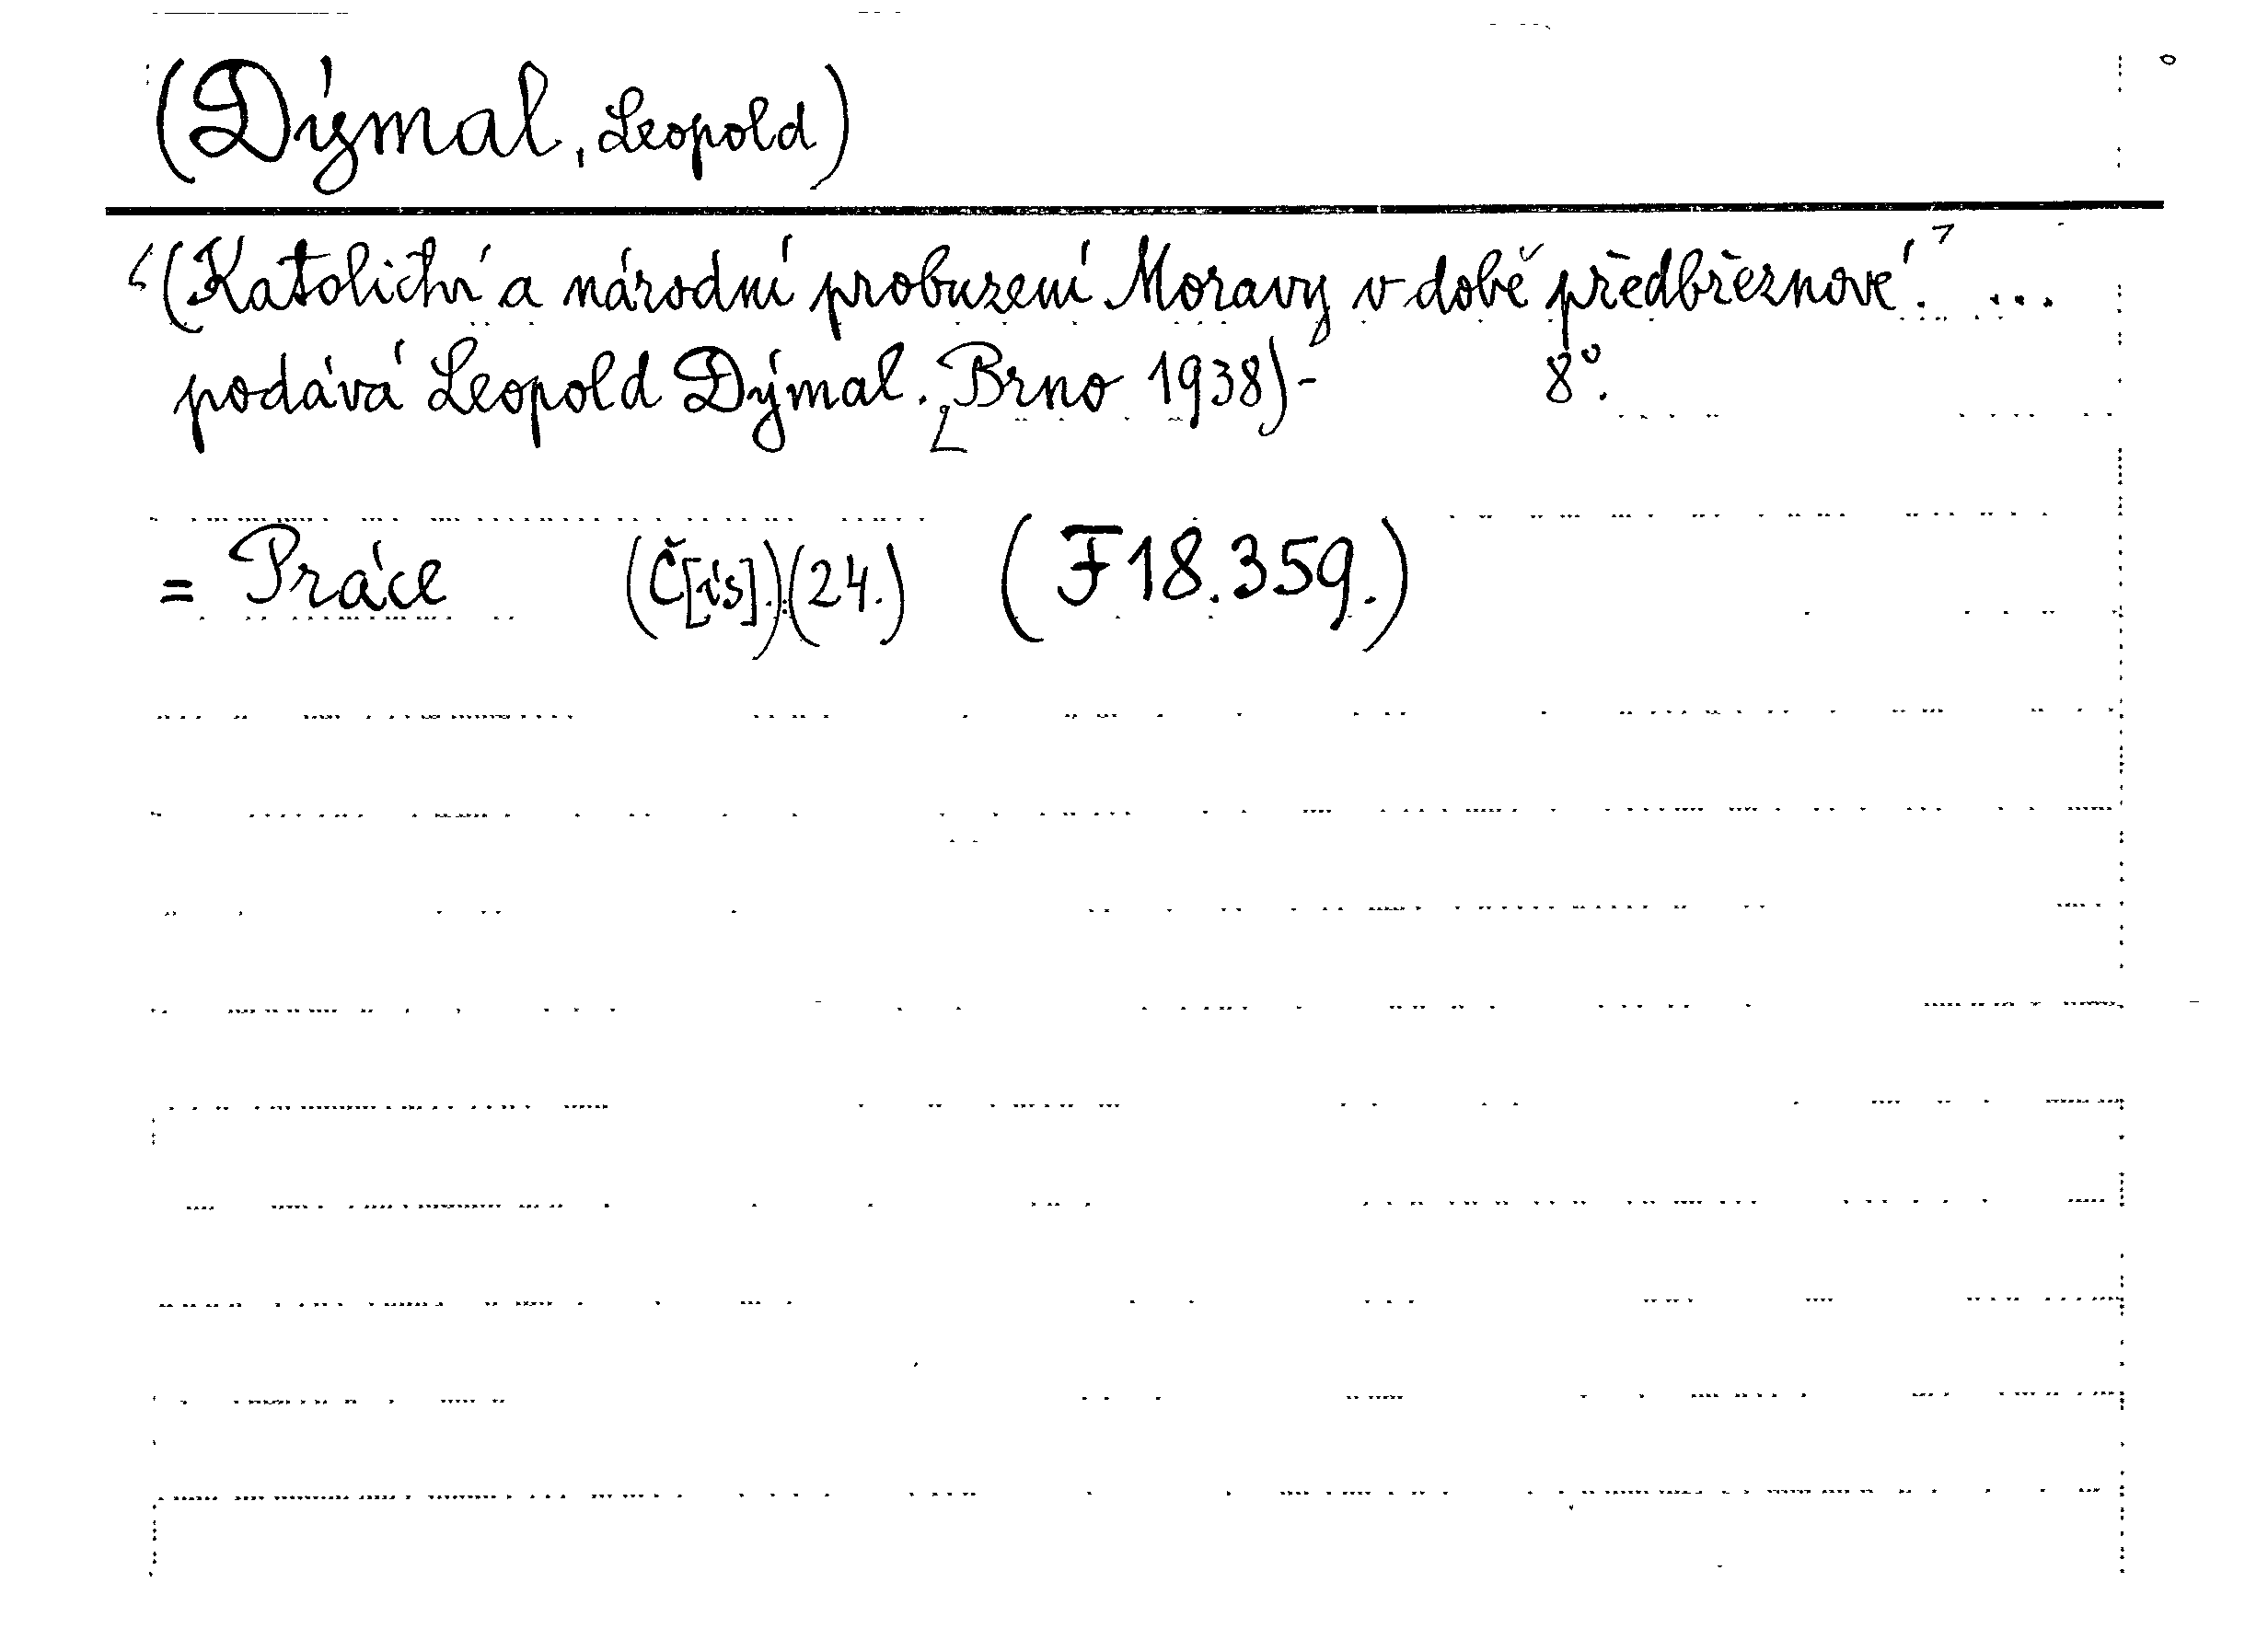 (Dýmal, Leopold)
(Katolictví a národní probuzení Moravy v době předbřeznové. ...
podává Leopold Dýmal. [Brno 1938)- 8°.
= Práce (Č[ís].)(24.) (F18.359.)